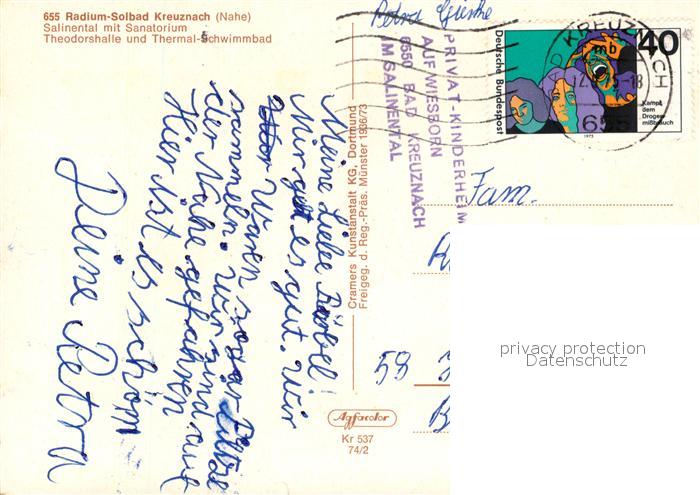 655 Radium-Solbad Kreuznach (Nahe)
Salinental mit Sanatorium
Theodorshalle und Thermal-Schwimmbad
Petra
PRIVAT-KINDERHEIM
AUF WIESBORN
6550 BAD KREUZNACH
IM SALINENTAL
Deutsche Bundespost
40
Kampf
dem
Drogen-
mißbrauch
1975
BAD KREUZNACH
mb
-18
655
Meine liebe Bärbel!
Mir get es gut. Wir
waren sogar Pilze
sammeln. Wir sind auf
der Nahe gefahren
Hier ist es schön
Deine Petra
Cramers Kunstanstalt KG, Dortmund
Freigeg. d. Reg.-Präs. Münster 1936/73
Fam.
58
Agfacolor
Kr 537
74/2
privacy protection
Datenschutz